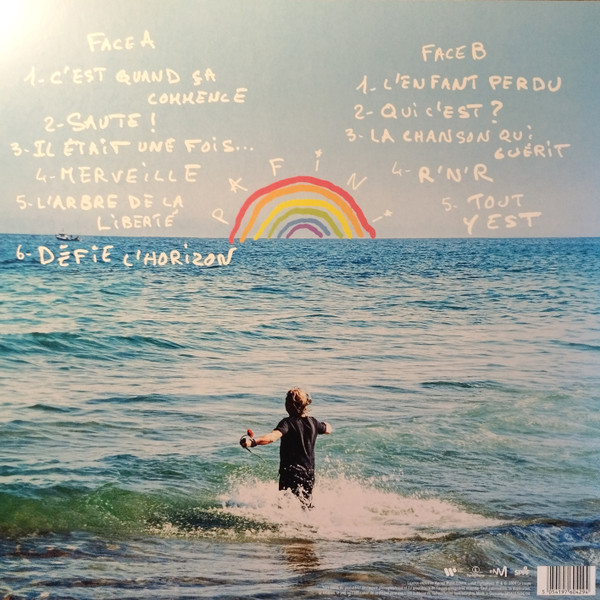 FACE A
1- C'EST QUAND ÇA
COMMENCE
2- SAUTE !
3- IL ÉTAIT UNE FOIS...
4- MERVEILLE
5- L'ARBRE DE LA
LIBERTÉ
6- DÉFIE L'HORIZON
PAFINI
FACE B
1- L'ENFANT PERDU
2- QUI C'EST ?
3- LA CHANSON QUI
GUÉRIT
4- R'N'R
5- TOUT
Y EST